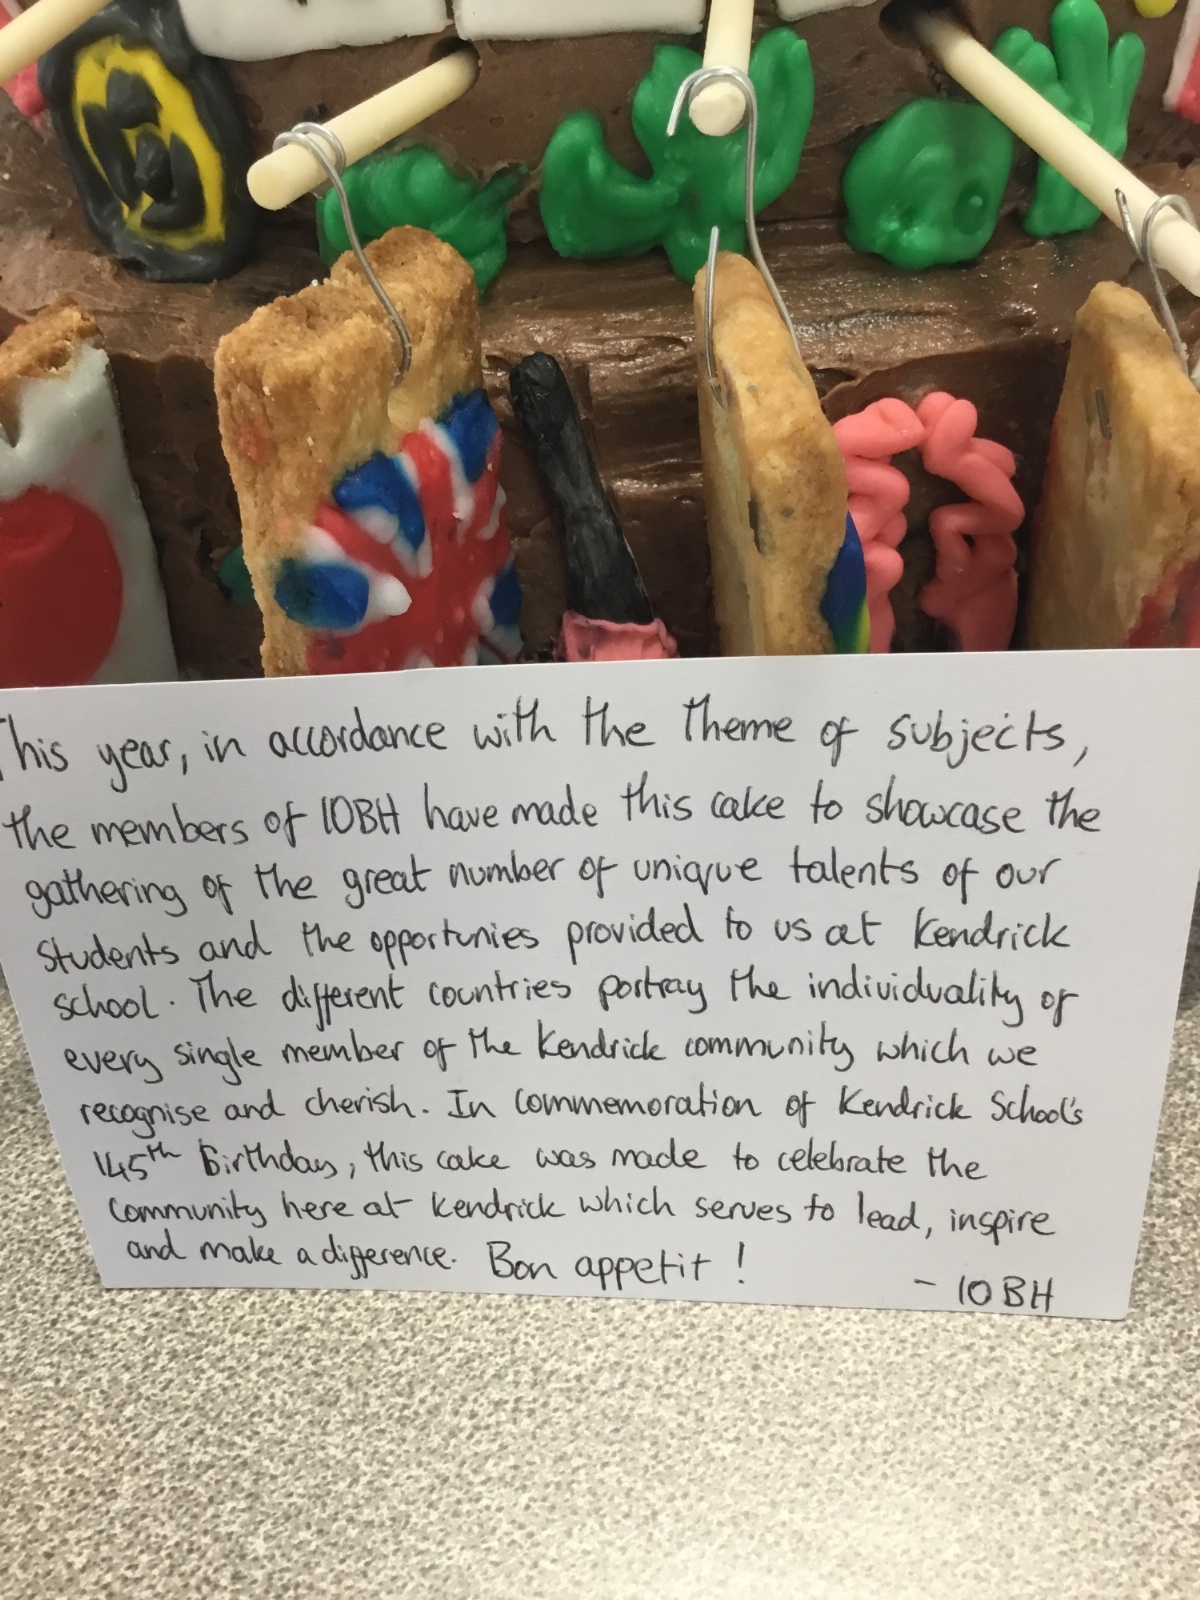 This year, in accordance with the theme of subjects,
the members of 10BH have made this cake to showcase the
gathering of the great number of unique talents of our
students and the opportunies provided to us at Kendrick
school. The different countries portray the individuality of
every single member of the Kendrick community which we
recognise and cherish. In commemoration of Kendrick School's
145th Birthday, this cake was made to celebrate the
community here at Kendrick which serves to lead, inspire
and make a difference. Bon appetit !
- 10BH